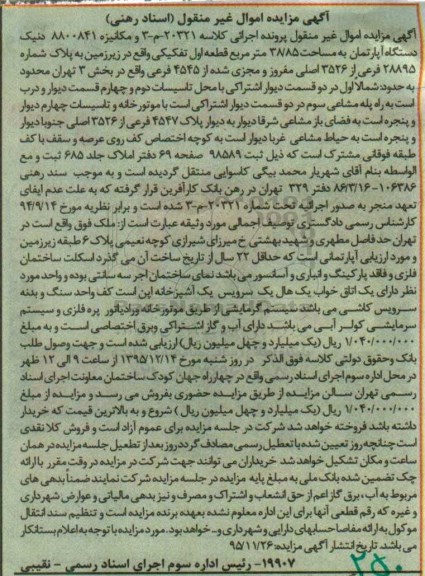 آگهی مزایده اموال غیر منقول (اسناد رهنی)
آگهی مزایده اموال غیر منقول پرونده اجرائی کلاسه ۲۰۳۲۱-م-۳ و مکانیزه ۸۸۰۰۸۴۱ دنیک
دستگاه آپارتمان به مساحت ۳۸/۸۵ متر مربع قطعه اول تفکیکی واقع در زیرزمین به پلاک شماره
۲۸۸۹۵ فرعی از ۳۵۲۶ اصلی مفروز و مجزی شده از ۴۵۴۵ فرعی واقع در بخش ۳ تهران محدود
به حدود: شمالا اول در دو قسمت دیوار اشتراکی با محل تاسیسات دوم و چهارم قسمت دیوار و درب
است به راه پله مشاعی سوم در دو قسمت دیوار اشتراکی است با موتورخانه و تاسیسات چهارم دیوار
و پنجره است به فضای باز مشاعی شرقا دیوار به دیوار پلاک ۴۵۴۷ فرعی از ۳۵۲۶ اصلی جنوبا دیوار
و پنجره است به حیاط مشاعی غربا دیوار است به کوچه اختصاص کف روی عرصه و سقف با کف
طبقه فوقانی مشترک است که ذیل ثبت ۹۸۵۸۹ صفحه ۶۹ دفتر املاک جلد ۶۸۵ ثبت و مع
الواسطه بنام آقای شهریار محمد بیگی کاسوایی منتقل گردیده است و به موجب سند رهنی
۱۰۶۳۸۶-۸۶/۳/۱۶ دفتر ۳۲۹ تهران در رهن بانک کارآفرین قرار گرفته که به علت عدم ایفای
تعهد منجر به صدور اجرائیه تحت شماره ۲۰۳۲۱-م-۳ شده است و برابر نظریه مورخ ۹۴/۹/۱۴
کارشناس رسمی دادگستری توصیف اجمالی مورد وثیقه عبارت است از: ملک فوق واقع است در
تهران حد فاصل مطهری و شهید بهشتی خ میرزای شیرازی کوچه نعیمی پلاک ۶ طبقه زیرزمین
و مورد ارزیابی آپارتمانی است که حداقل ۲۲ سال از تاریخ ساخت آن می گذرد اسکلت ساختمان
فلزی و فاقد پارکینگ و انباری و آسانسور می باشد نمای ساختمان آجر سه سانتی بوده و واحد مورد
نظر دارای یک اتاق خواب یک هال یک سرویس یک آشپزخانه اپن است کف واحد سنگ و بدنه
سرویس کاشی می باشد سیستم گرمایشی از طریق موتورخانه ورادیاتور پره فلزی و سیستم
سرمایشی کولر آبی می باشد دارای آب و گاز اشتراکی وبرق اختصاصی است و به مبلغ
۱/۰۴۰/۰۰۰/۰۰۰ ریال (یک میلیارد و چهل میلیون ریال) ارزیابی شده است و جهت وصول طلب
بانک وحقوق دولتی کلاسه فوق الذکر در روز شنبه مورخ ۱۳۹۵/۱۲/۱۴ از ساعت ۹ الی ۱۲ ظهر
در محل اداره سوم اجرای اسناد رسمی واقع در چهارراه جهان کودک ساختمان معاونت اجرای اسناد
رسمی تهران سالن مزایده از طریق مزایده حضوری بفروش می رسد و مزایده از مبلغ
۱/۰۴۰/۰۰۰/۰۰۰ ریال (یک میلیارد و چهل میلیون ریال) شروع و به بالاترین قیمت که خریدار
داشته باشد فروخته خواهد شد شرکت در جلسه مزایده برای عموم آزاد است و فروش کلا نقدی
است چنانچه روز تعیین شده با تعطیل رسمی مصادف گردد روز بعد از تعطیل جلسه مزایده در همان
ساعت و مکان تشکیل خواهد شد خریداران می توانند جهت شرکت در مزایده در وقت مقرر با ارائه
چک تضمین شده بانک ملی به مبلغ پایه مزایده در جلسه مزایده شرکت نمایند ضمنا بدهی های
مربوط به آب، برق گاز اعم از حق انشعاب و اشتراک و مصرف و نیز بدهی مالیاتی و عوارض شهرداری
و غیره که رقم قطعی آنها برای این اداره معلوم نشده بعهده برنده مزایده است و تنظیم سند انتقال
موکول به ارائه مفاصا حسابهای دارایی و شهرداری و.. خواهد بود. مورد مزایده با توجه به اعلام بستانکار
می باشد. تاریخ انتشار آگهی مزایده: ۹۵/۱۱/۲۶
۱۹۹۰۷- رئیس اداره سوم اجرای اسناد رسمی - نقیبی
۲۵۰